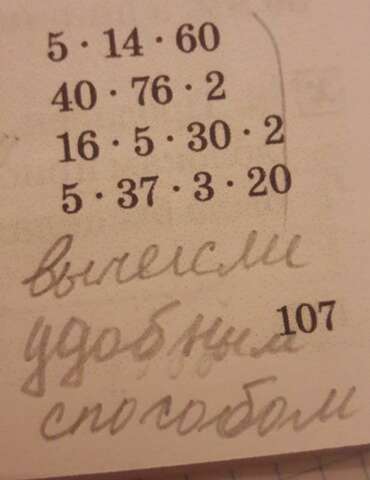 5 · 14 · 60
40 · 76 · 2
16 · 5 · 30 · 2
5 · 37 · 3 · 20
вычисли
удобным
107
способом